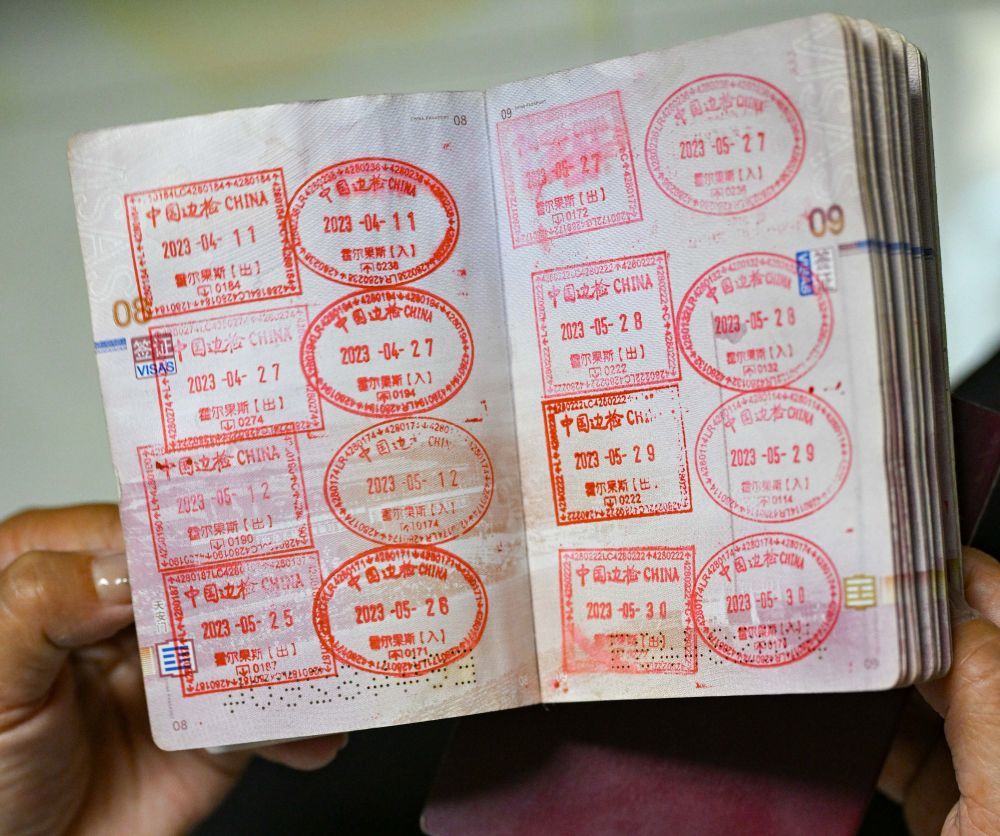 CHINA PASSPORT 08
中国边检 CHINA
2023-04-11
霍尔果斯【出】
0184
中国边检 CHINA
2023-04-11
霍尔果斯【入】
0238
08
签证
VISAS
中国边检 CHINA
2023-04-27
霍尔果斯【出】
0274
中国边检 CHINA
2023-04-27
霍尔果斯【入】
0194
中国边检 CHINA
2023-05-12
霍尔果斯【出】
0190
中国边检 CHINA
2023-05-12
霍尔果斯【入】
0174
中国边检 CHINA
2023-05-25
霍尔果斯【出】
0187
中国边检 CHINA
2023-05-26
霍尔果斯【入】
0171
天安门
08
09 CHINA PASSPORT
-05-27
霍尔果斯【出】
0172
中国边检 CHINA
2023-05-27
霍尔果斯【入】
0236
09
签证
VISAS
中国边检 CHINA
2023-05-28
霍尔果斯【出】
0222
中国边检 CHINA
2023-05-28
霍尔果斯【入】
0132
中国边检 CHI
2023-05-29
霍尔果斯【出】
0222
中国边检 CHINA
2023-05-29
霍尔果斯【入】
0114
中国边检 CHINA
2023-05-30
中国边检 CHINA
2023-05-30
霍尔果斯【入】
09